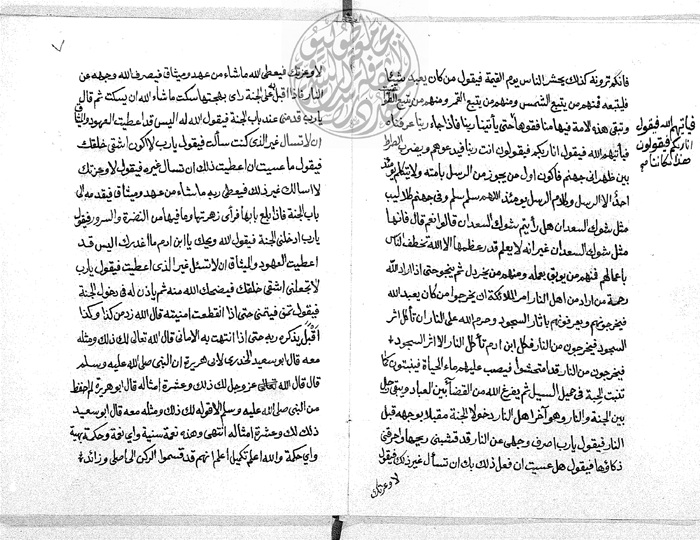 فانكم ترونه كذلك يحشر الناس يوم القيمة فيقول من كان يعبد شيئا
فليتبعه فمنهم من يتبع الشمس ومنهم من يتبع القمر ومنهم من يتبع
وتبقى هذه الامة فيها منافقوها حتى يأتينا ربنا فاذا جاء ربنا عرفناه
فيأتيهم الله فيقول انا ربكم فيقولون انت ربنا فيدعوهم ويضرب الصراط
بين ظهراني جهنم فاكون اول من يجوز من الرسل بامته ولا يتكلم يومئذ
احد الا الرسل وكلام الرسل يومئذ اللهم سلم سلم وفي جهنم كلاليب
مثل شوك السعدان هل رأيتم شوك السعدان قالوا نعم قال فانها
مثل شوك السعدان غير انه لا يعلم قدر عظمها الا الله تخطف الناس
باعمالهم فمنهم من يوبق بعمله ومنهم من يخردل ثم ينجو حتى اذا اراد الله
رحمة من اراد من اهل النار امر الملائكة ان يخرجوا من كان يعبد الله
فيخرجونهم ويعرفونهم باثار السجود وحرم الله على النار ان تأكل اثر
السجود فيخرجون من النار فكل ابن ادم تأكل النار الا اثر السجود
فيخرجون من النار قد امتحشوا فيصب عليهم ماء الحياة فينبتون كما
تنبت الحبة في حميل السيل ثم يفرغ الله من القضاء بين العباد ويبقى رجل
بين الجنة والنار وهو آخر اهل النار دخولا الجنة مقبلا بوجهه قبل
النار فيقول يارب اصرف وجهي عن النار قد قشبني ريحها واحرقني
ذكاؤها فيقول هل عسيت ان فعل ذلك بك ان تسأل غير ذلك فيقول
لا وعزتك
فيأتيهم الله فيقول
انا ربكم فيقولون
هذا مكاننا
لا وعزتك فيعطى الله ماشاء من عهد وميثاق فيصرف الله وجهه عن
النار فاذا اقبل على الجنة راى بهجتها سكت ماشاء الله ان يسكت ثم قال
يارب قدمني عند باب الجنة فيقول الله له اليس قد اعطيت العهود والميثاق
ان لا تسأل غير الذي كنت سألت فيقول يارب لا اكون اشقى خلقك
فيقول ما عسيت ان اعطيت ذلك ان تسأل غيره فيقول لا وعزتك
لا اسالك غير ذلك فيعطى ربه ماشاء من عهد وميثاق فيقدمه الى
باب الجنة فاذا بلغ بابها فرأى زهرتها وما فيها من النضرة والسرور فيقول
يارب ادخلني الجنة فيقول الله ويحك يا ابن ادم ما اغدرك اليس قد
اعطيت العهود والميثاق ان لا تسئل غير الذي اعطيت فيقول يارب
لا تجعلني اشقى خلقك فيضحك الله منه ثم يأذن له في دخول الجنة
فيقول تمن فيتمنى حتى اذا انقطعت امنيته قال الله زد من كذا وكذا
اقبل يذكره ربه حتى اذا انتهت به الاماني قال الله تعالى لك ذلك ومثله
معه قال ابو سعيد الخدري لابي هريرة ان النبي صلى الله عليه وسلم
قال قال الله عز وجل لك ذلك وعشرة امثاله قال ابو هريرة لم احفظ
من النبي صلى الله عليه وسلم الا قوله لك ذلك ومثله معه قال ابو سعيد
ذلك لك وعشرة امثاله انتهى وهذه نعمة سنية واي نعمة وحكمة بهية
واي حكمة والله اعلم تكميل اعلم انهم قد قسموا الركن الى اصلي وزائد
٧